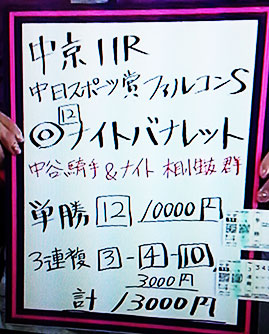 中京11R
中日スポーツ賞 ファルコンS
◎12 ナイトバナレット
中谷騎手&ナイト 相性抜群
単勝 12 10000円
3連複 3-4-10
3000円
計 13000円